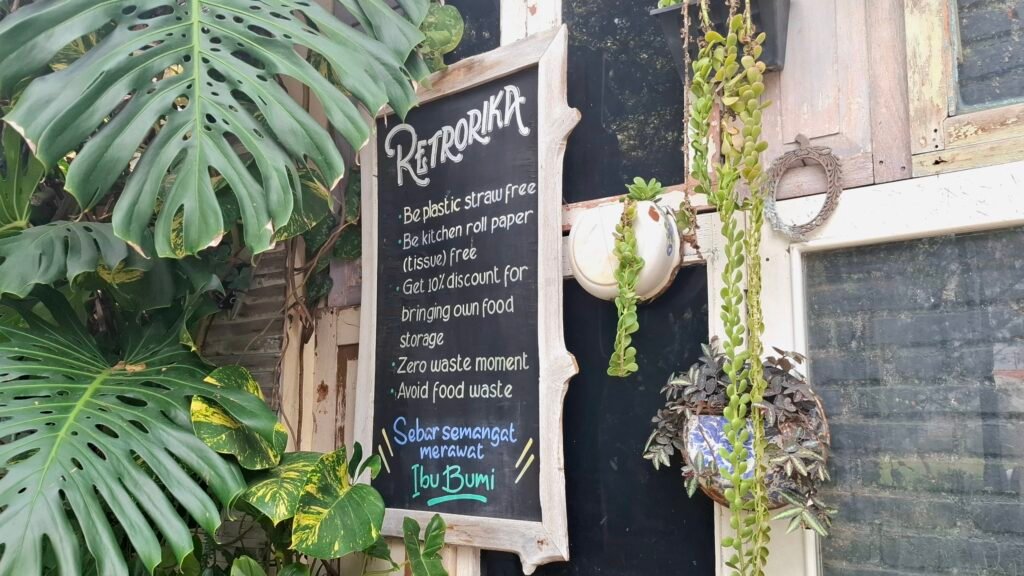 RETRORIKA
· Be plastic straw free
· Be kitchen roll paper
(tissue) free
· Get 10% discount for
bringing own food
storage
· Zero waste moment
· Avoid food waste
Sebar semangat
merawat
Ibu Bumi